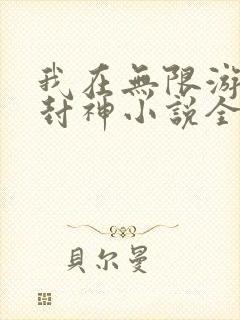 我在無限游
封神小説全
貝尔曼